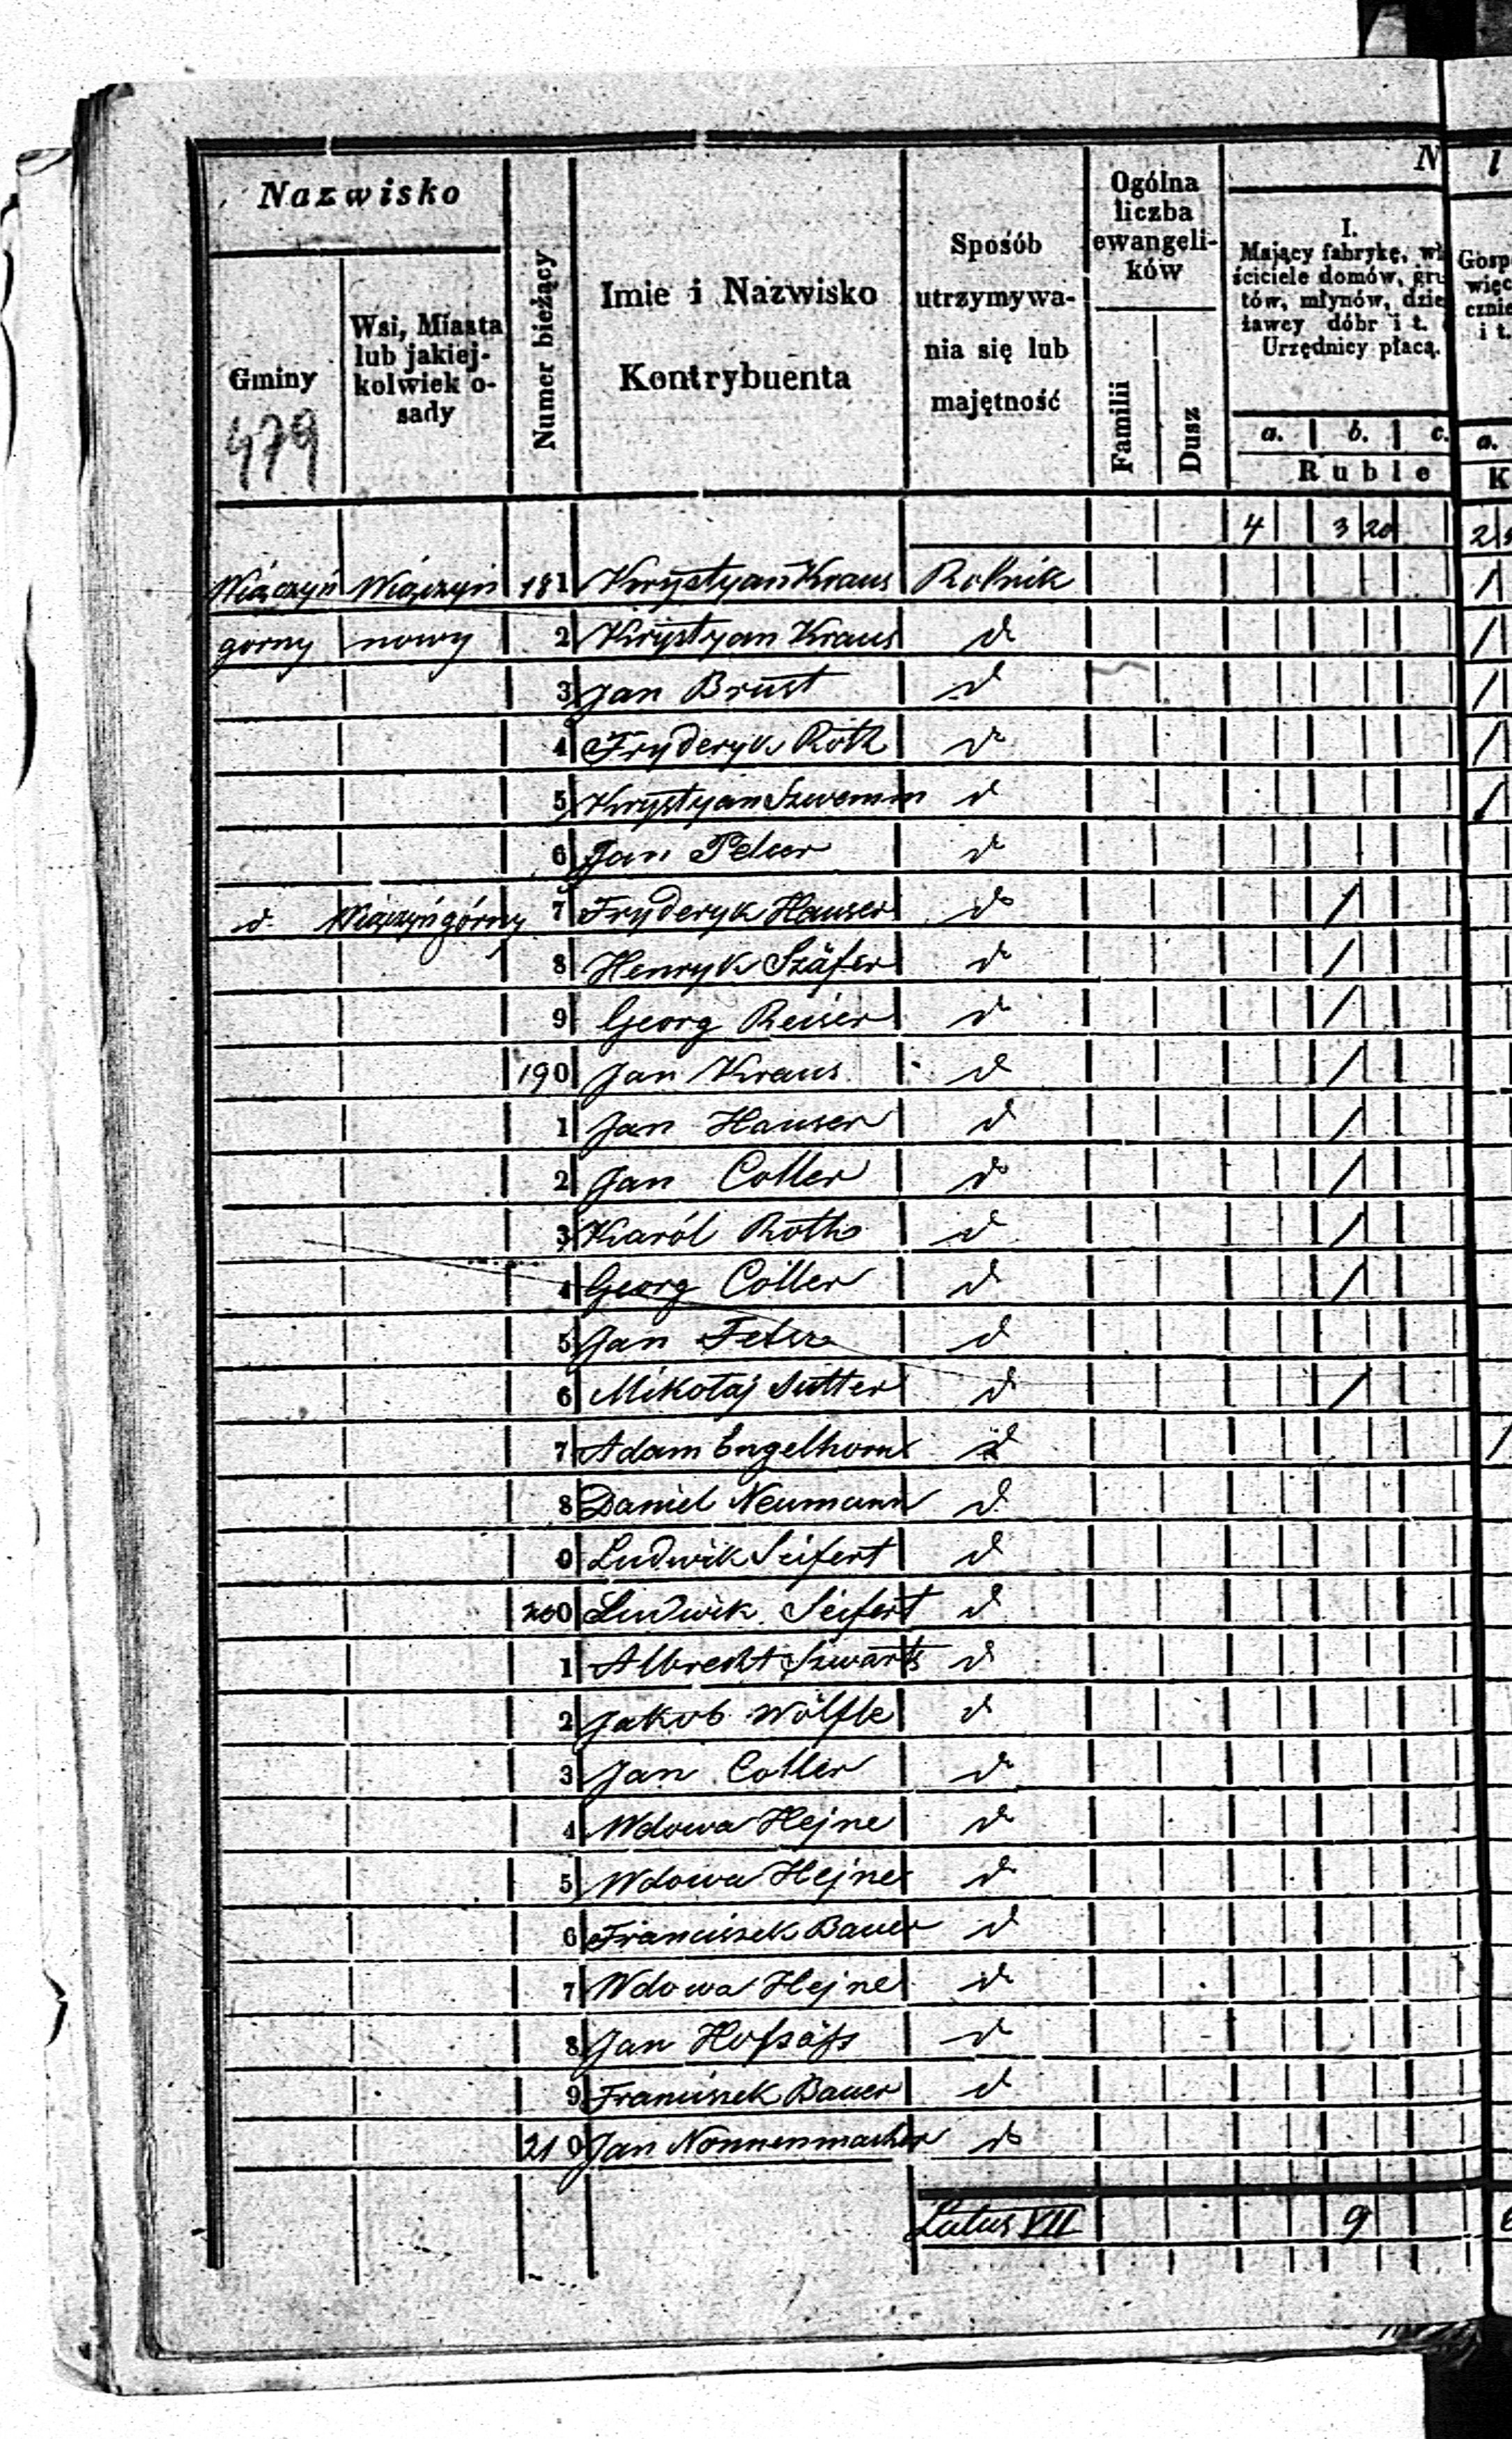 Nazwisko
Gminy
479
Wsi, Miasta
lub jakiej-
kolwiek o-
sady
Numer bieżący
Imie i Nazwisko
Kontrybuenta
Sposób
utrzymywa-
nia się lub
majętność
Ogólna
liczba
ewangeli-
ków
Familii
Dusz
N
I.
Mający fabrykę, wła
ściciele domów, gru
tów, młynów, dzie
ławcy dóbr i t.
Urzędnicy płacą.
a. b. c.
Ruble
l
Gosp
więc
cznie
i t.
a.
K
4 3 20 2
Wiączyń Wiączyń 181 Krystyan Kraus Rolnik /
gorny nowy 2 Krystyan Kraus d /
3 Jan Brust d /
4 Fryderyk Roth d /
5 Krystyan Szwemm d /
6 Jan Pelzer d
d. Wiączyń górny 7 Fryderyk Hauser d /
8 Henryk Szäfer d /
9 Georg Reiser d /
190 Jan Kraus d /
1 Jan Hauser d /
2 Jan Coller d /
3 Karól Roth d /
4 Georg Cöller d /
5 Jan d
6 Mikołaj Sutter d /
7 Adam Engelhorn d /
8 Daniel Neumann d
9 Ludwik Seifert d
200 Ludwik Seifert d
1 Albrecht Szwarts d
2 Jakob Wölfle d
3 Jan Coller d
4 Wdowa Hejne d
5 Wdowa Hejne d
6 Franciszek Bauer d
7 Wdowa Hejne d
8 Jan Hofsäss d
9 Franciszek Bauer d
210 Jan Nonnenmacher d
Latus VII 9